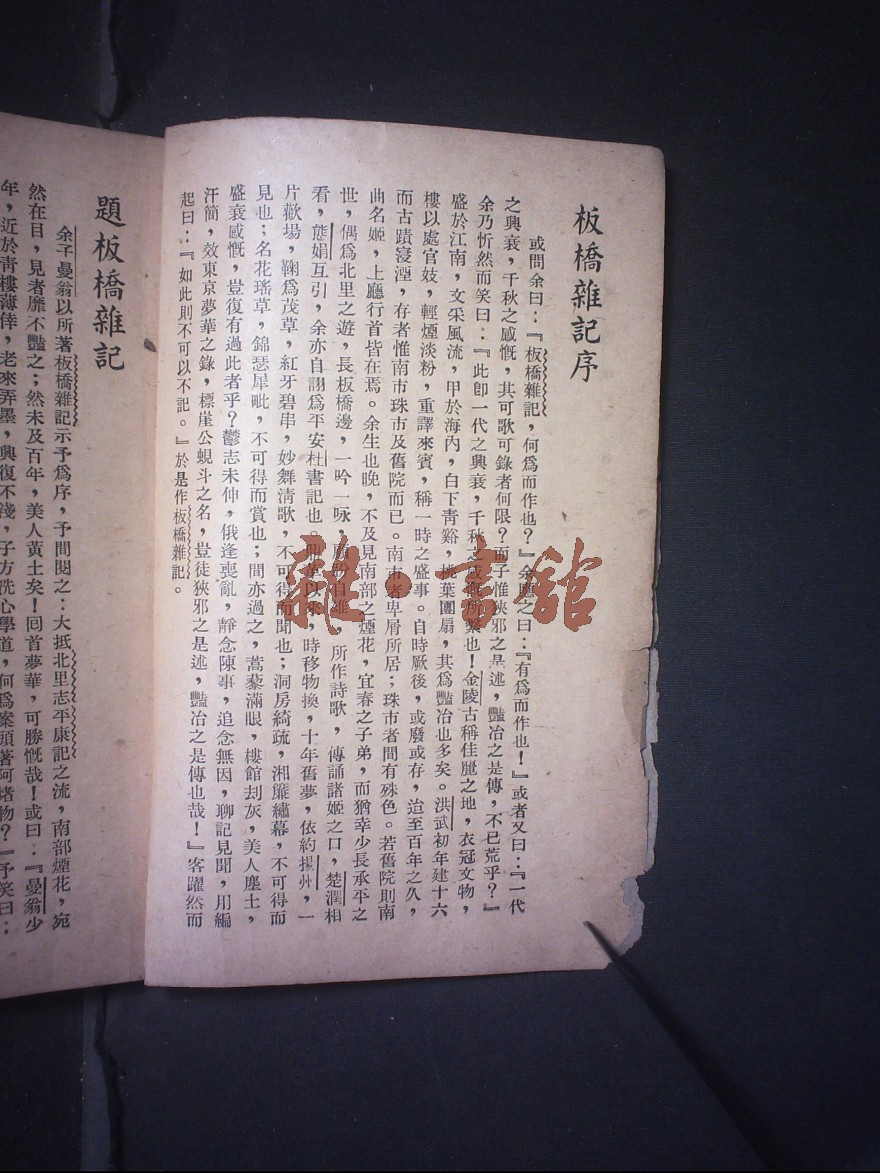 板橋雜記序
或問余曰：『板橋雜記，何爲而作也？』余應之曰：『有爲而作也！』或者又曰：『一代
之興衰，千秋之感慨，其可歌可錄者何限？而子惟狹邪之是述，豔冶之是傳，不已荒乎？』
余乃忻然而笑曰：『此卽一代之興衰，千秋之感慨所繫也！金陵古稱佳麗之地，衣冠文物，
盛於江南，文采風流，甲於海內，白下靑谿，桃葉團扇，其爲豔冶也多矣。洪武初年建十六
樓以處官妓，輕煙淡粉，重譯來賓，稱一時之盛事。自時厥後，或廢或存，迨至百年之久，
而古蹟寖湮，存者惟南市珠市及舊院而已。南市者卑屑所居；珠市者間有殊色。若舊院則南
曲名姬，上廳行首皆在焉。余生也晚，不及見南部之煙花，宜春之子弟，而猶幸少長承平之
世，偶爲北里之遊，長板橋邊，一吟一咏，顧盼自雄，所作詩歌，傳誦諸姬之口，楚潤相
看，態娟互引，余亦自詡爲平安杜書記也。鼎革以來，時移物換，十年舊夢，依約揚州，一
片歡場，鞠爲茂草，紅牙碧串，妙舞淸歌，不可得而聞也；洞房綺疏，湘簾繡幕，不可得而
見也；名花瑤草，錦瑟犀毗，不可得而賞也；間亦過之，蒿藜滿眼，樓館刦灰，美人塵土，
盛衰感慨，豈復有過此者乎？鬱志未伸，俄逢喪亂，靜念陳事，追念無因，聊記見聞，用編
汗簡，效東京夢華之錄，標崖公蜆斗之名，豈徒狹邪之是述，豔冶之是傳也哉！』客躍然而
起曰：『如此則不可以不記。』於是作板橋雜記。
題板橋雜記
余子曼翁以所著板橋雜記示予爲序，予間閱之：大抵北里志平康記之流，南部煙花，宛
然在目，見者靡不豔之；然未及百年，美人黃土矣！回首夢華，可勝慨哉！或曰：『曼翁少
年，近於靑樓薄倖，老來弄墨，興復不淺，子方洗心學道，何爲案頭著阿堵物？』予笑曰：
雜·書館